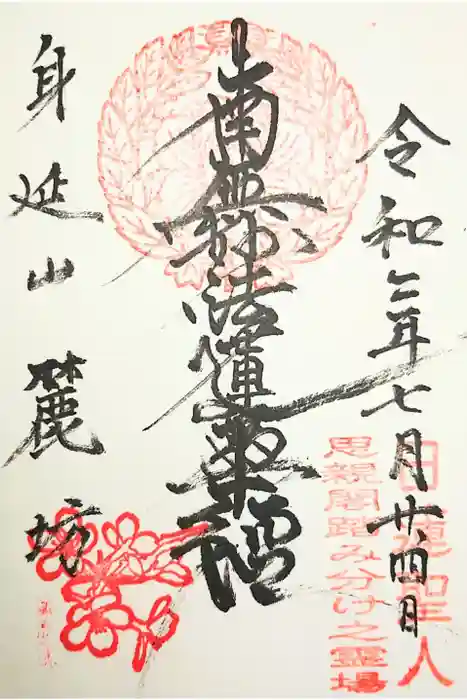 令和三年七月廿四日
日蓮聖人
思親閣踏み分け之霊場
南無妙法蓮華経
身延山 麓坊